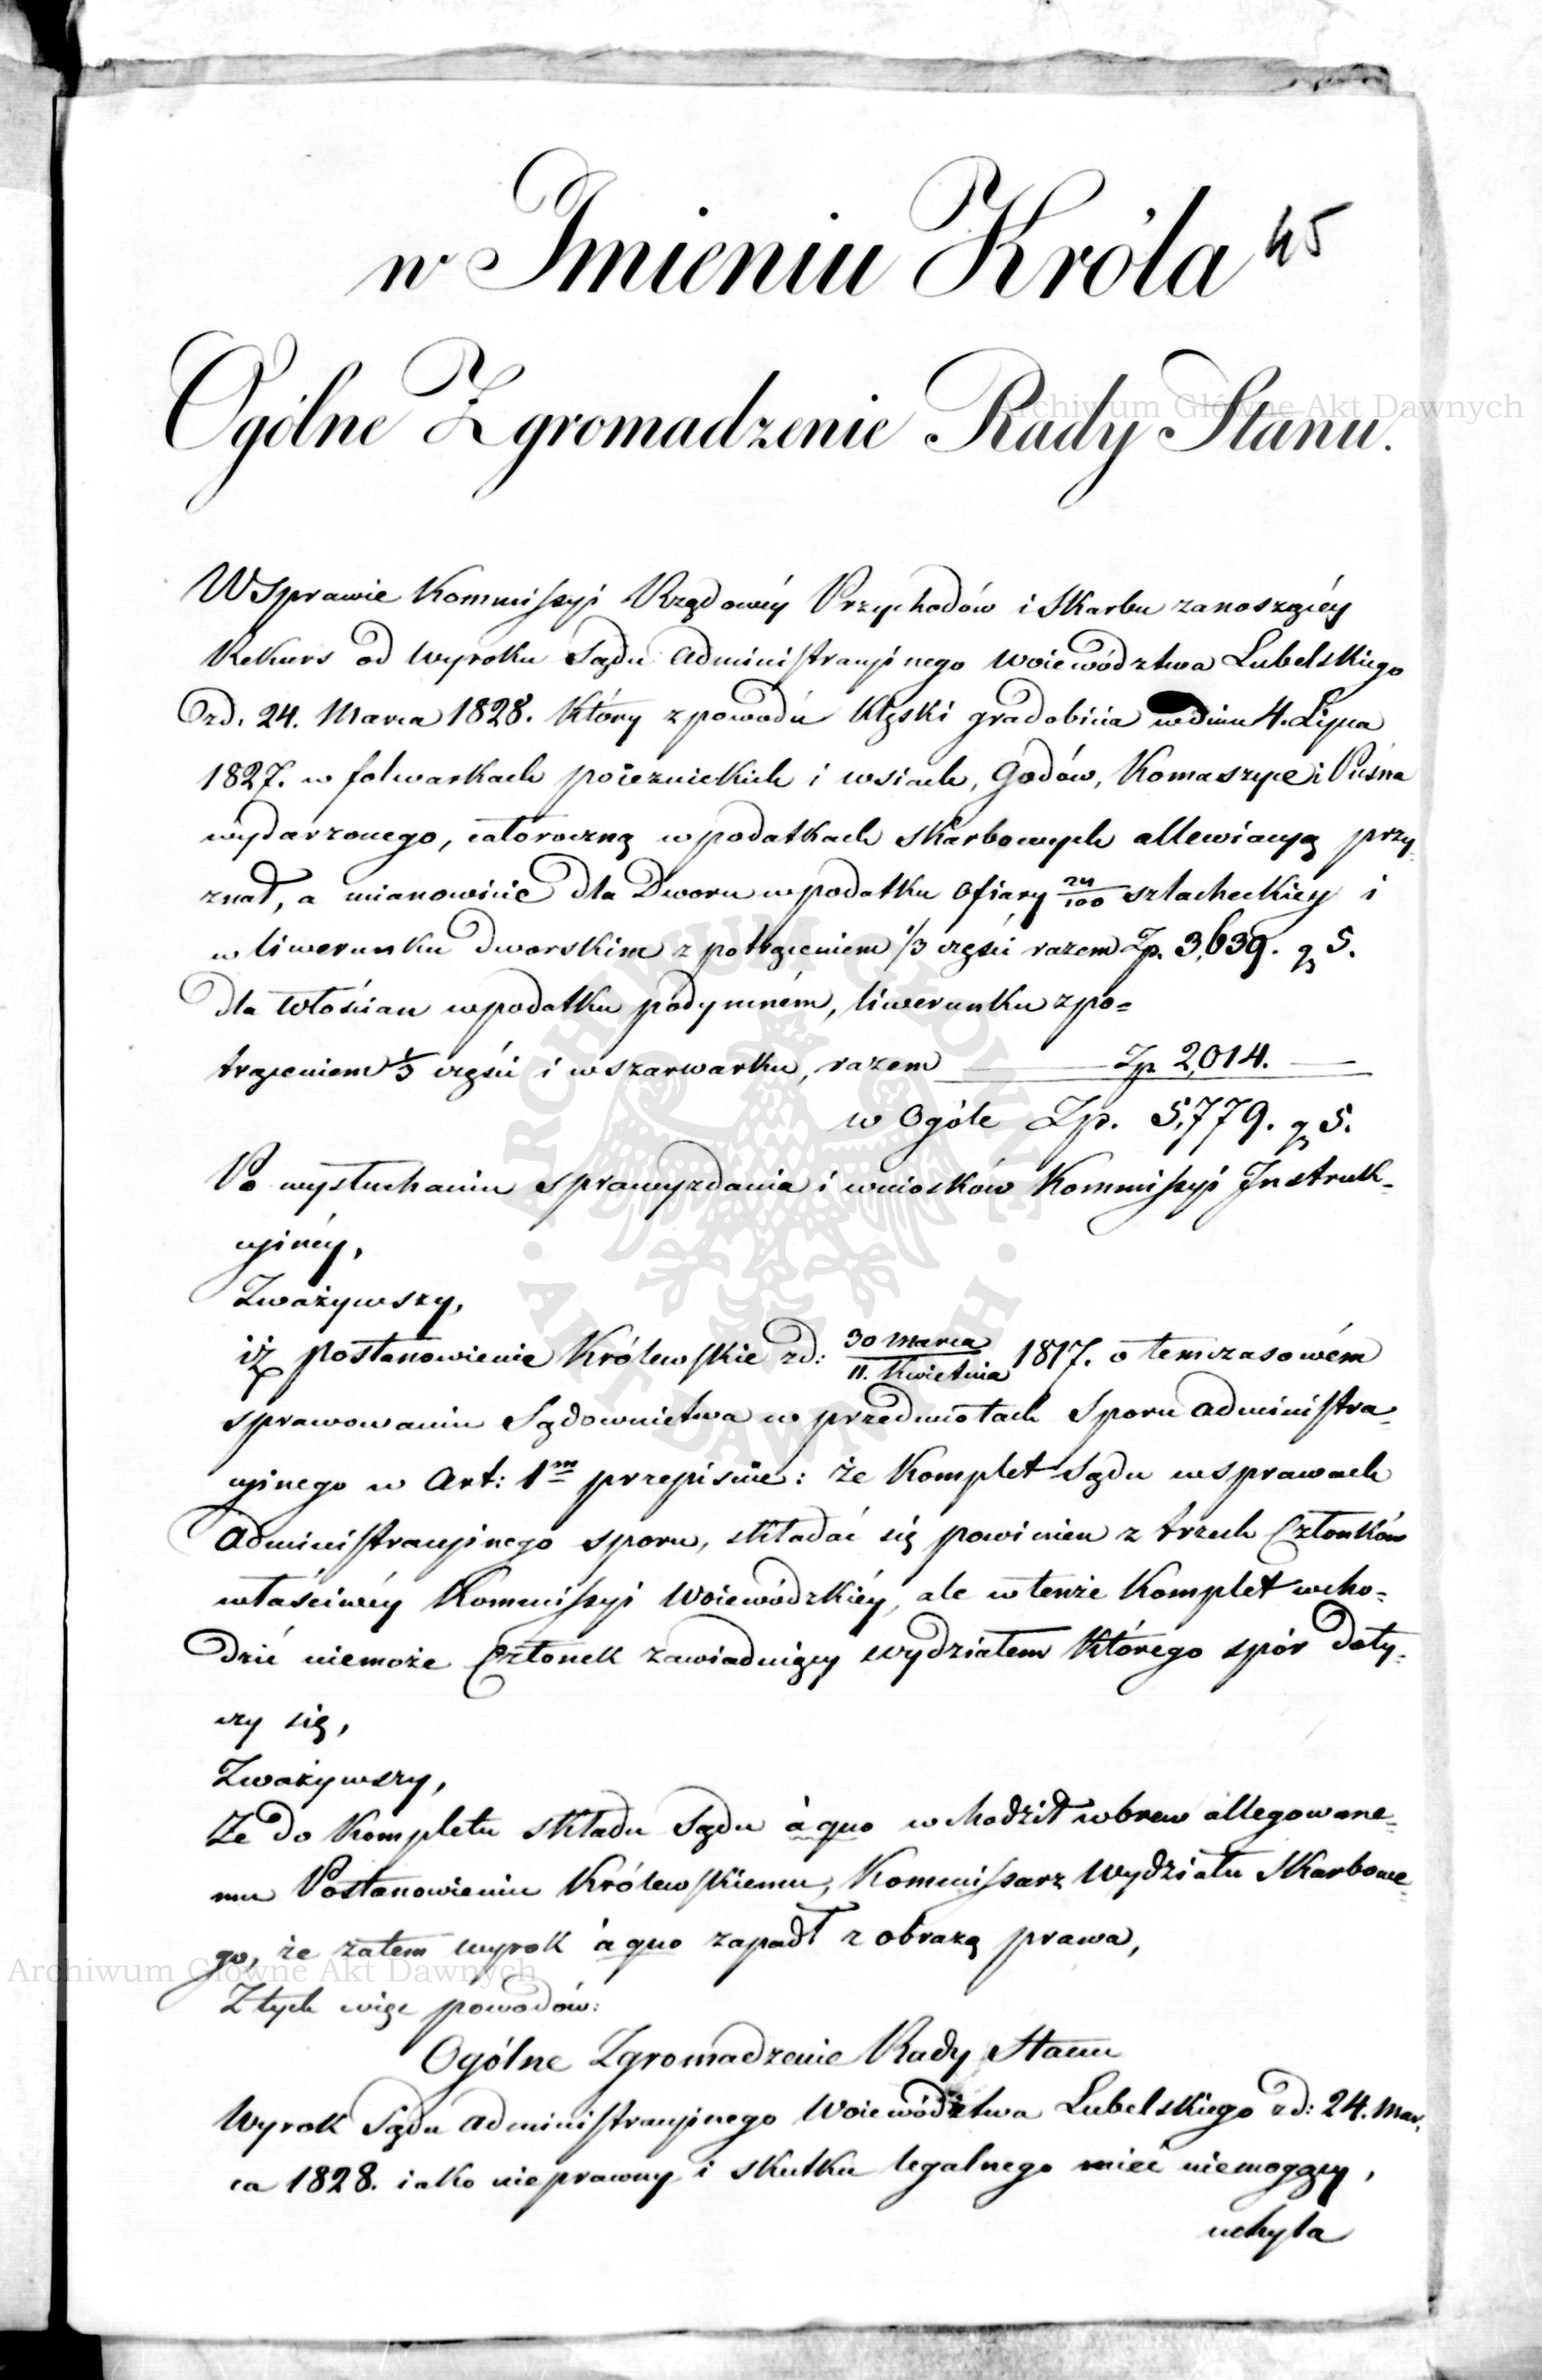 w Imieniu Króla 45
Ogólne Zgromadzenie Rady Stanu.
W Sprawie Kommissyi Rządowéy Przychodów i Skarbu zanoszącéy
Rekurs od Wyroku Sądu Administracyinego Woiewództwa Lubelskiego
zd. 24. Marca 1828. który z powodu klęski gradobicia w dniu 4. Lipca
1827. w folwarkach poieznickich i wsiach, Godów, Komaszyce i Puśna
wydarzonego, całoroczną w podatkach skarbowych allewiacyą przy-
znał, a mianowicie dla Dworu w podatku Ofiary 24/100 szlacheckiey i
w liwerunku dworskim z potrąceniem 1/3 części razem Zp. 3,639. g 5.
dla Włościan w podatku podymném, liwerunku z po=
trąceniem 1/3 części i w szarwarku, razem Zp 2,014. —
w Ogóle Zp. 5,779. g 5.
Po wysłuchaniu sprawyzdania i wniosków Kommissyi Instruk-
cyinéy,
Zważywszy,
iż postanowienie Królewskie zd: 30 Marca / 11. Kwietnia 1817. o temczasowém
sprawowaniu Sądownictwa w przedmiotach Sporu administra-
cyinego w Art: 1m przepisuie: że Komplet Sądu w sprawach
Administracyinego sporu, składać się powinien z trzech Członków
właściwéy Kommissyi Woiewódzkiéy, ale w tenże Komplet wcho=
dzić niemoże Członek zawiaduiący wydziałem którego spór doty-
czy się,
Zważywszy,
Że do Kompletu składu Sądu à quo wchodził wbrew allegowane-
mu Postanowieniu Królewskiemu, Kommissarz Wydziału Skarbowe-
go, że zatem wyrok à quo zapadł z obrazą prawa,
Z tych więc powodów:
Ogólne Zgromadzenie Rady Stanu
Wyrok Sądu Administracyinego Woiewództwa Lubelskiego zd: 24. Mar-
ca 1828. iako nieprawny i skutku legalnego mieć niemogący,
uchyla
Archiwum Główne Akt Dawnych
Archiwum Główne Akt Dawnych
ARCHIWUM GŁÓWNE · AKT DAWNYCH ·